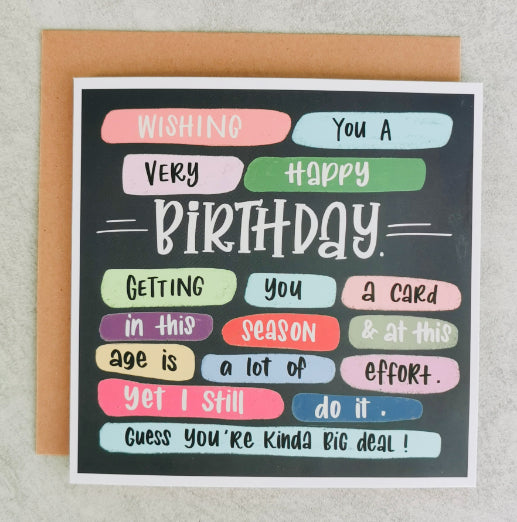 WISHING YOU A
VERY HAPPY
BIRTHDAY.
GETTING YOU a caRD
in this season & at this
age is a lot of effoRt.
yet I still do it.
Guess you're Kinda BIG deal!